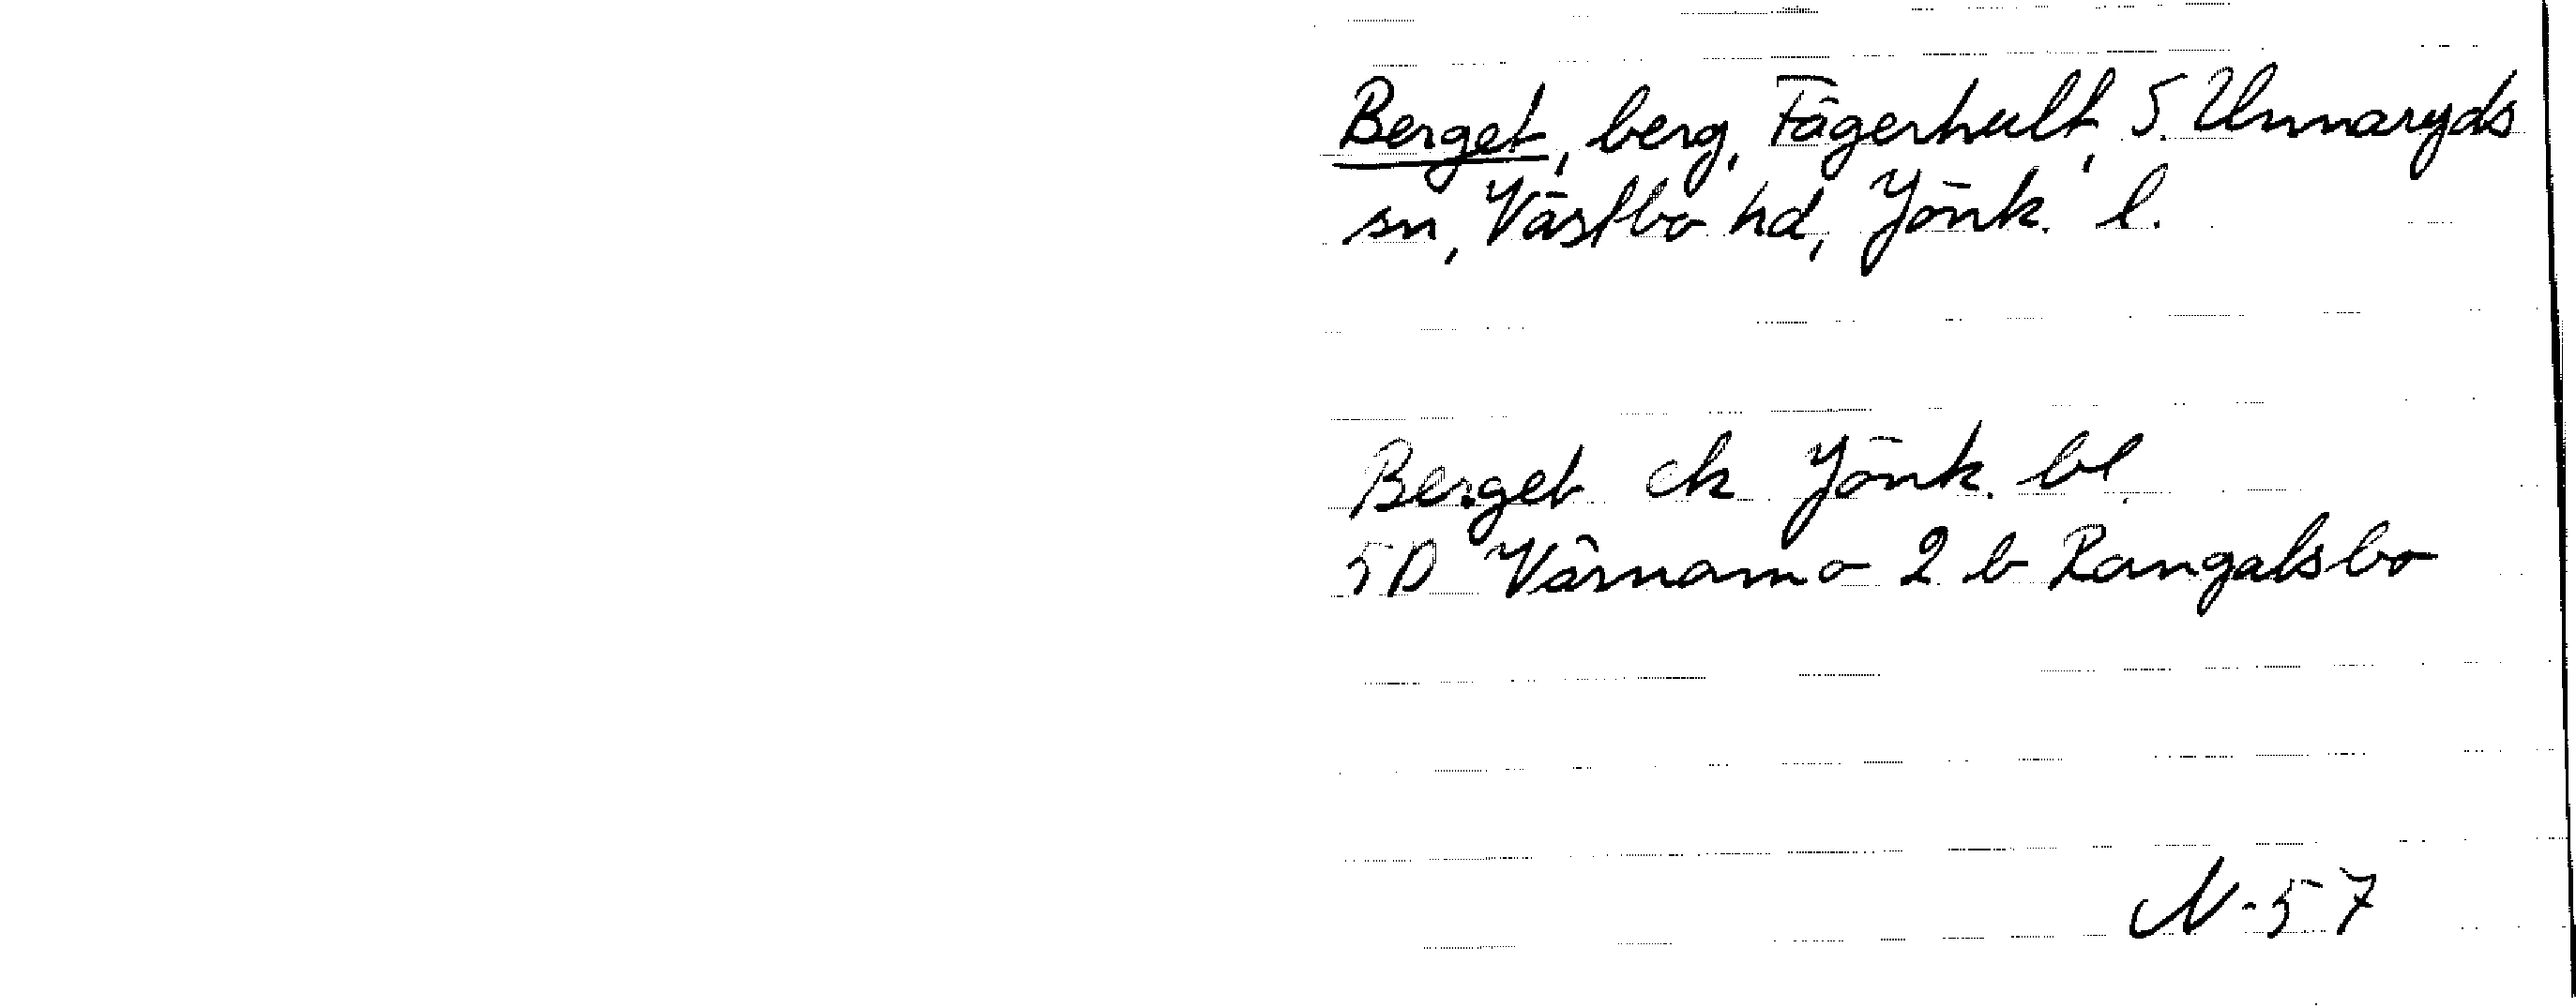 Berget, berg, Fägerhult, S. Unnaryds
sn, Västbo hd, Jönk. l.
Berget ek Jönk. bl.
5D Värnamo 2 b Rangalsbo
N-57